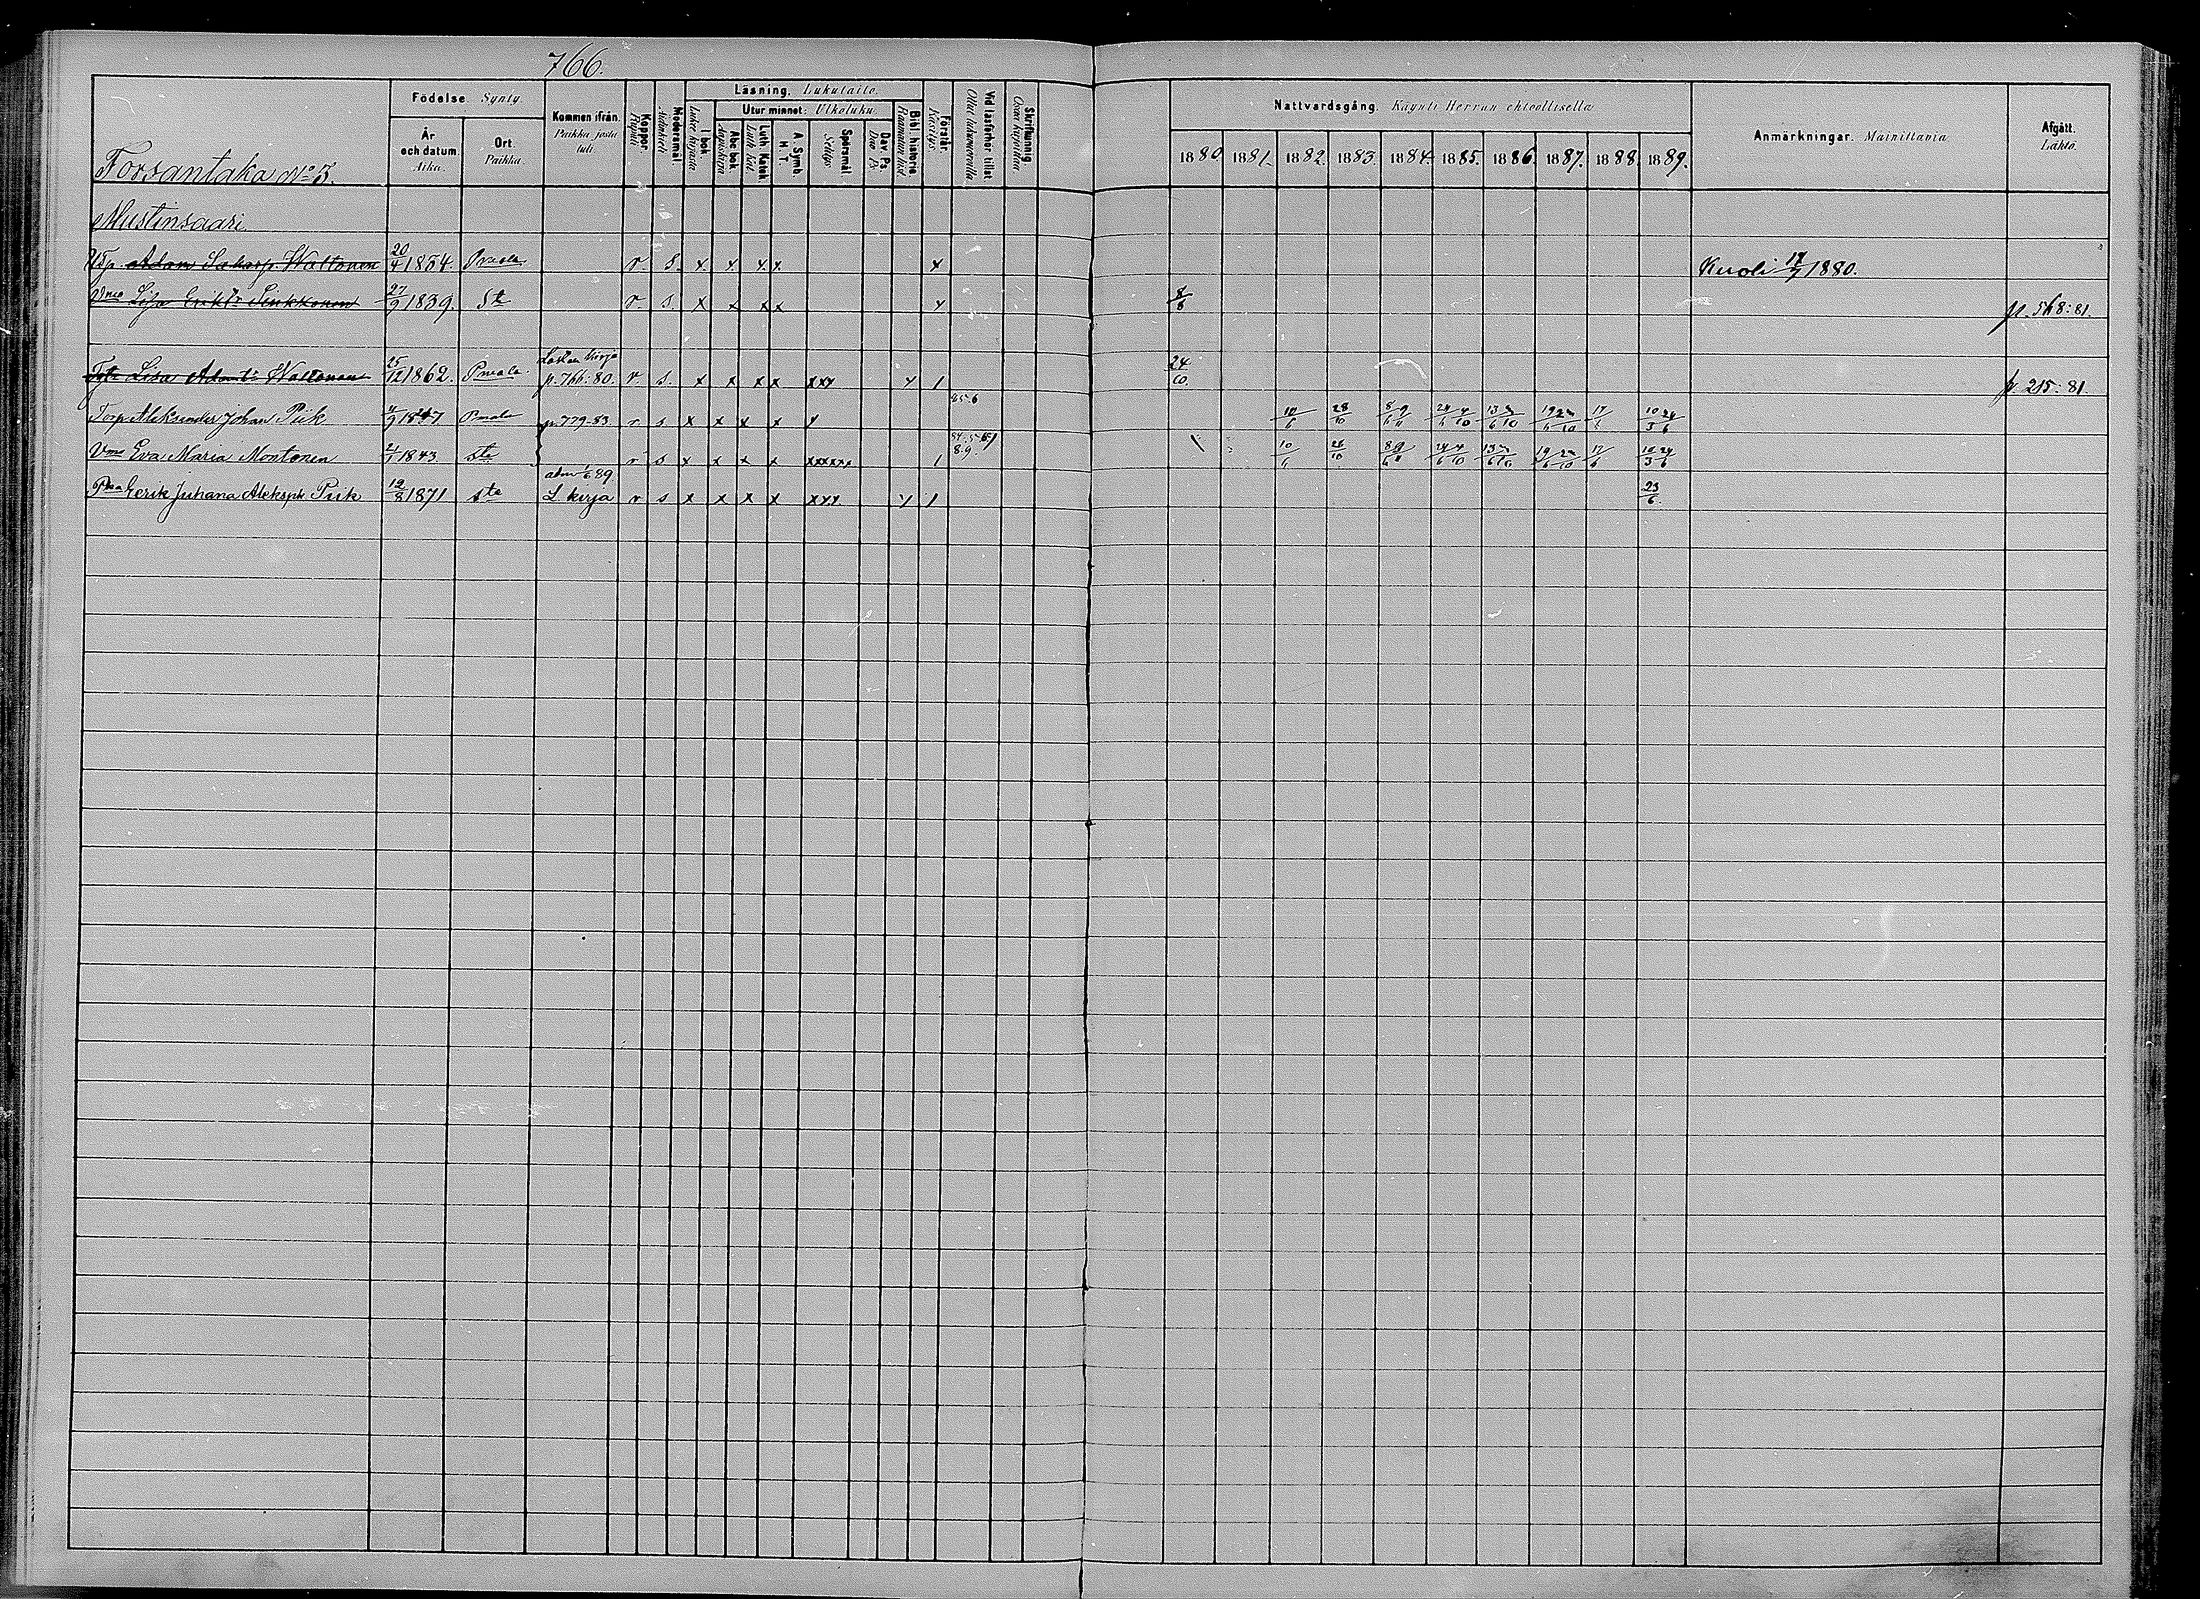 766.
Forsantaka No 5.
Födelse Synty.
År och datum. Aika.
Ort. Paikka.
Kommen ifrån. Paikka josta tuli.
Koppor. Rupuli
Modersmål. Äidinkieli
Läsning. Lukutaito.
I bok. Luke kirjasta
Utur minnet: Ulkoluku
Abc bok. Aapiskirja
Luth. Katek. Luth. kat.
A. Symb. H. T.
Spörsmål. Selitys
Dav. Ps. Dav. Ps.
Bibl. historia Raamatun hist.
Förstår. Käsitys
Vid läsförhör tillst. Ollut lukuvuorolla
Skrifkunnig Osaa kirjoittaa
Nattvardsgång. Käynti Herran ehtoollisella
1880 1881. 1882. 1883. 1884. 1885. 1886. 1887. 1888. 1889.
Anmärkningar. Mainittavia
Afgått. Lähtö.
Mustinsaari
Adam Sakarp. Wattonen 20/4 1834. Pmala r. s. x. x. x x x Kuoli 17/7 1880.
Vmo Lisa Erikt: Sinkkonen 27/9 1839. Ste r. s. x x x x x 8/8 p. 568:81.
Lasten kirja
Tytr Lisa Adamt: Wattonen 25/12 1862. Pmala p. 766:80. r. s. x x x x xxx x 1 24/10. p. 215:81.
85-6
Torp. Aleksander Johan Piik 4/9 1847 Pmala p. 779-83 r s x x x x x 10/6 28/10 8/6 9/11 24/6 4/10 13/6 3/10 19/6 17/6 10/3 24/6
Vmo Eva Maria Montonen 2/1 1843. Ste r s x x x x xxxxx 1 10/6 28/10 8/6 9/11 24/6 4/10 13/6 3/10 19/6 17/6 10/3 24/6
89
Pka Eerik Juhana Aleksp. Piik 12/8 1871 Ste L. kirja r s x x x x xxx x 1 23/6.